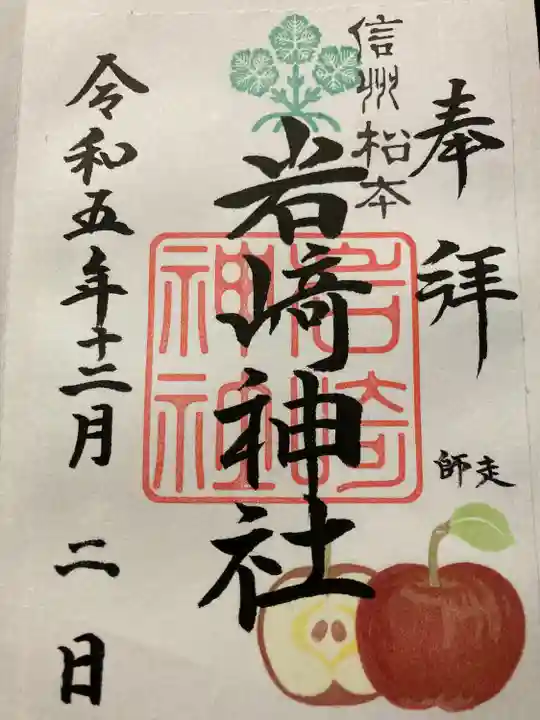 奉拝
師走
信州松本
岩﨑神社
岩崎神社
令和五年十二月 二日